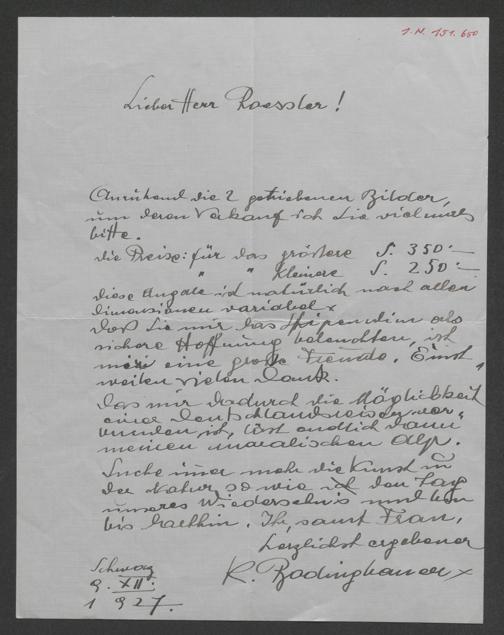 I.N. 151.650
Lieber Herr Roessler!
Anruhend die 2 getriebenen Bilder,
um deren Verkauf ich Sie vielmals
bitte.
die Preise: für das grössere S. 350.—
" " Kleinere S. 250.—
diese Angabe ist natürlich nach allen
Dimensionen variabel.
Daß Sie mir das Stipendium als
sichere Hoffnung beleuchten, ist
mir eine große Freude. Einst„
weilen vielen Dank.
Das mir dadurch die Möglichkeit
einer Deutschlandreise ver„
bunden ist, löst endlich dann
meinen moralischen Alp.
Suche immer mehr die Kunst in
der Natur so wie ich den Tag
unseres Wiedersehn's und bin
bis dahin, Ihr, samt Frau,
herzlichst ergebener
Schwaz
9. XII.
1927.
K. Bodinghauer